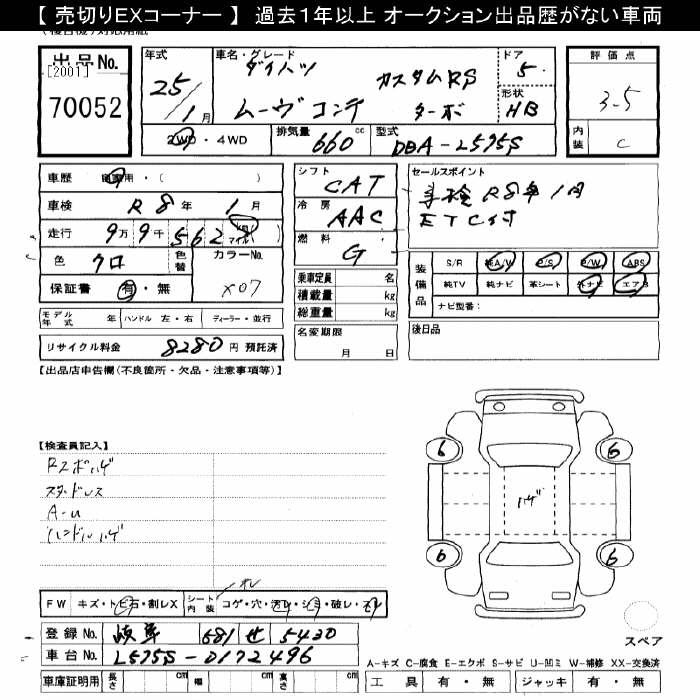 【 売切りEXコーナー 】 過去1年以上 オークション出品歴がない車両
出品 No. [2001] 70052
年式 25/1月
車名・グレード ダイハツ ムーヴ コンテ カスタム RS ターボ
ドア 5
形状 HB
2WD・4WD
排気量 660 cc
型式 DBA-L575S
評価点 3.5
内装 C
車歴 自家用・( )
車検 R8年 1月
走行 9万9千562 km マイル
色 クロ 色替 カラーNo. X07
保証書 有・無
シフト CAT
冷房 AAC
燃料 G
乗車定員 名
積載量 kg
総重量 kg
セールスポイント
車検 R8年 1月
ETC付
装備品
S/R 純A/W P/S P/W ABS
純TV 純ナビ 革シート 外ナビ エアB
ナビ型番:
モデル年式 年 ハンドル 左・右 ディーラー・並行
リサイクル料金 8280 円 預託済
名変期限 月 日
後日品
【出品店申告欄(不良箇所・欠品・注意事項等)】
【検査員記入】
スタッドレス
A-U
ハンドルハゲ
ハゲ
6 6
6 6
FW キズ・トビ石・割レX シート内装 コゲ・穴・汚レ・シミ・破レ・スレ
登録 No. 岐阜 581 せ 5430
車台 No. L575S-0172496
スペア
A-キズ C-腐食 E-エクボ S-サビ U-凹ミ W-補修 XX-交換済
車庫証明用 長さ cm 幅 cm 高さ cm
工具 有・無 ジャッキ 有・無